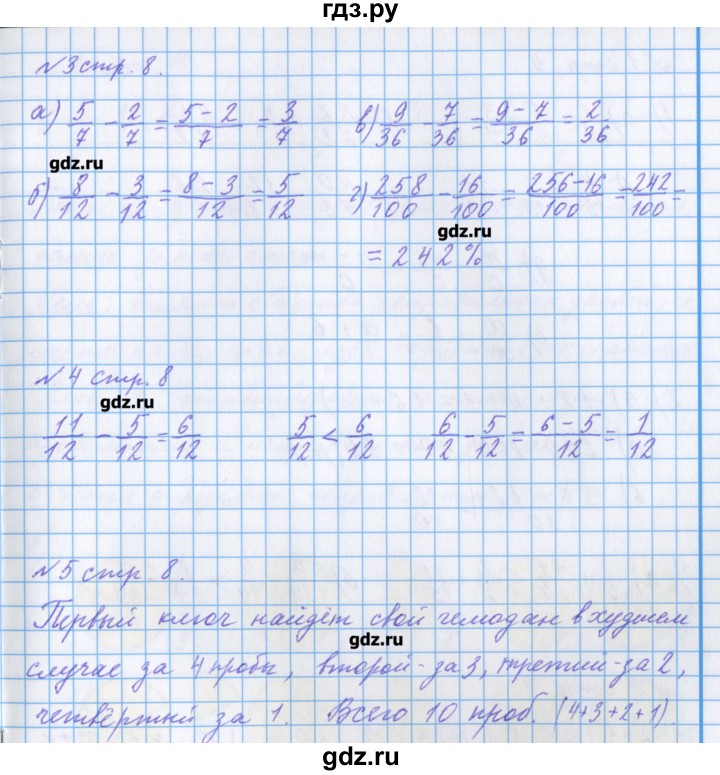 гдз.ру
№3 стр. 8.
а) 5/7 - 2/7 = (5-2)/7 = 3/7
в) 9/36 - 7/36 = (9-7)/36 = 2/36
gdz.ru
б) 8/12 - 3/12 = (8-3)/12 = 5/12
г) 258/100 - 16/100 = (256-16)/100 = 242/100 =
gdz.ru
= 242%
№4 стр. 8
gdz.ru
11/12 - 5/12 = 6/12
5/12 < 6/12
6/12 - 5/12 = (6-5)/12 = 1/12
№5 стр. 8.
Первый ключ найдёт свой чемодан в худшем
gdz.ru
случае за 4 пробы, второй - за 3, третий - за 2,
четвёртый за 1. Всего 10 проб. (4+3+2+1)
gdz.ru